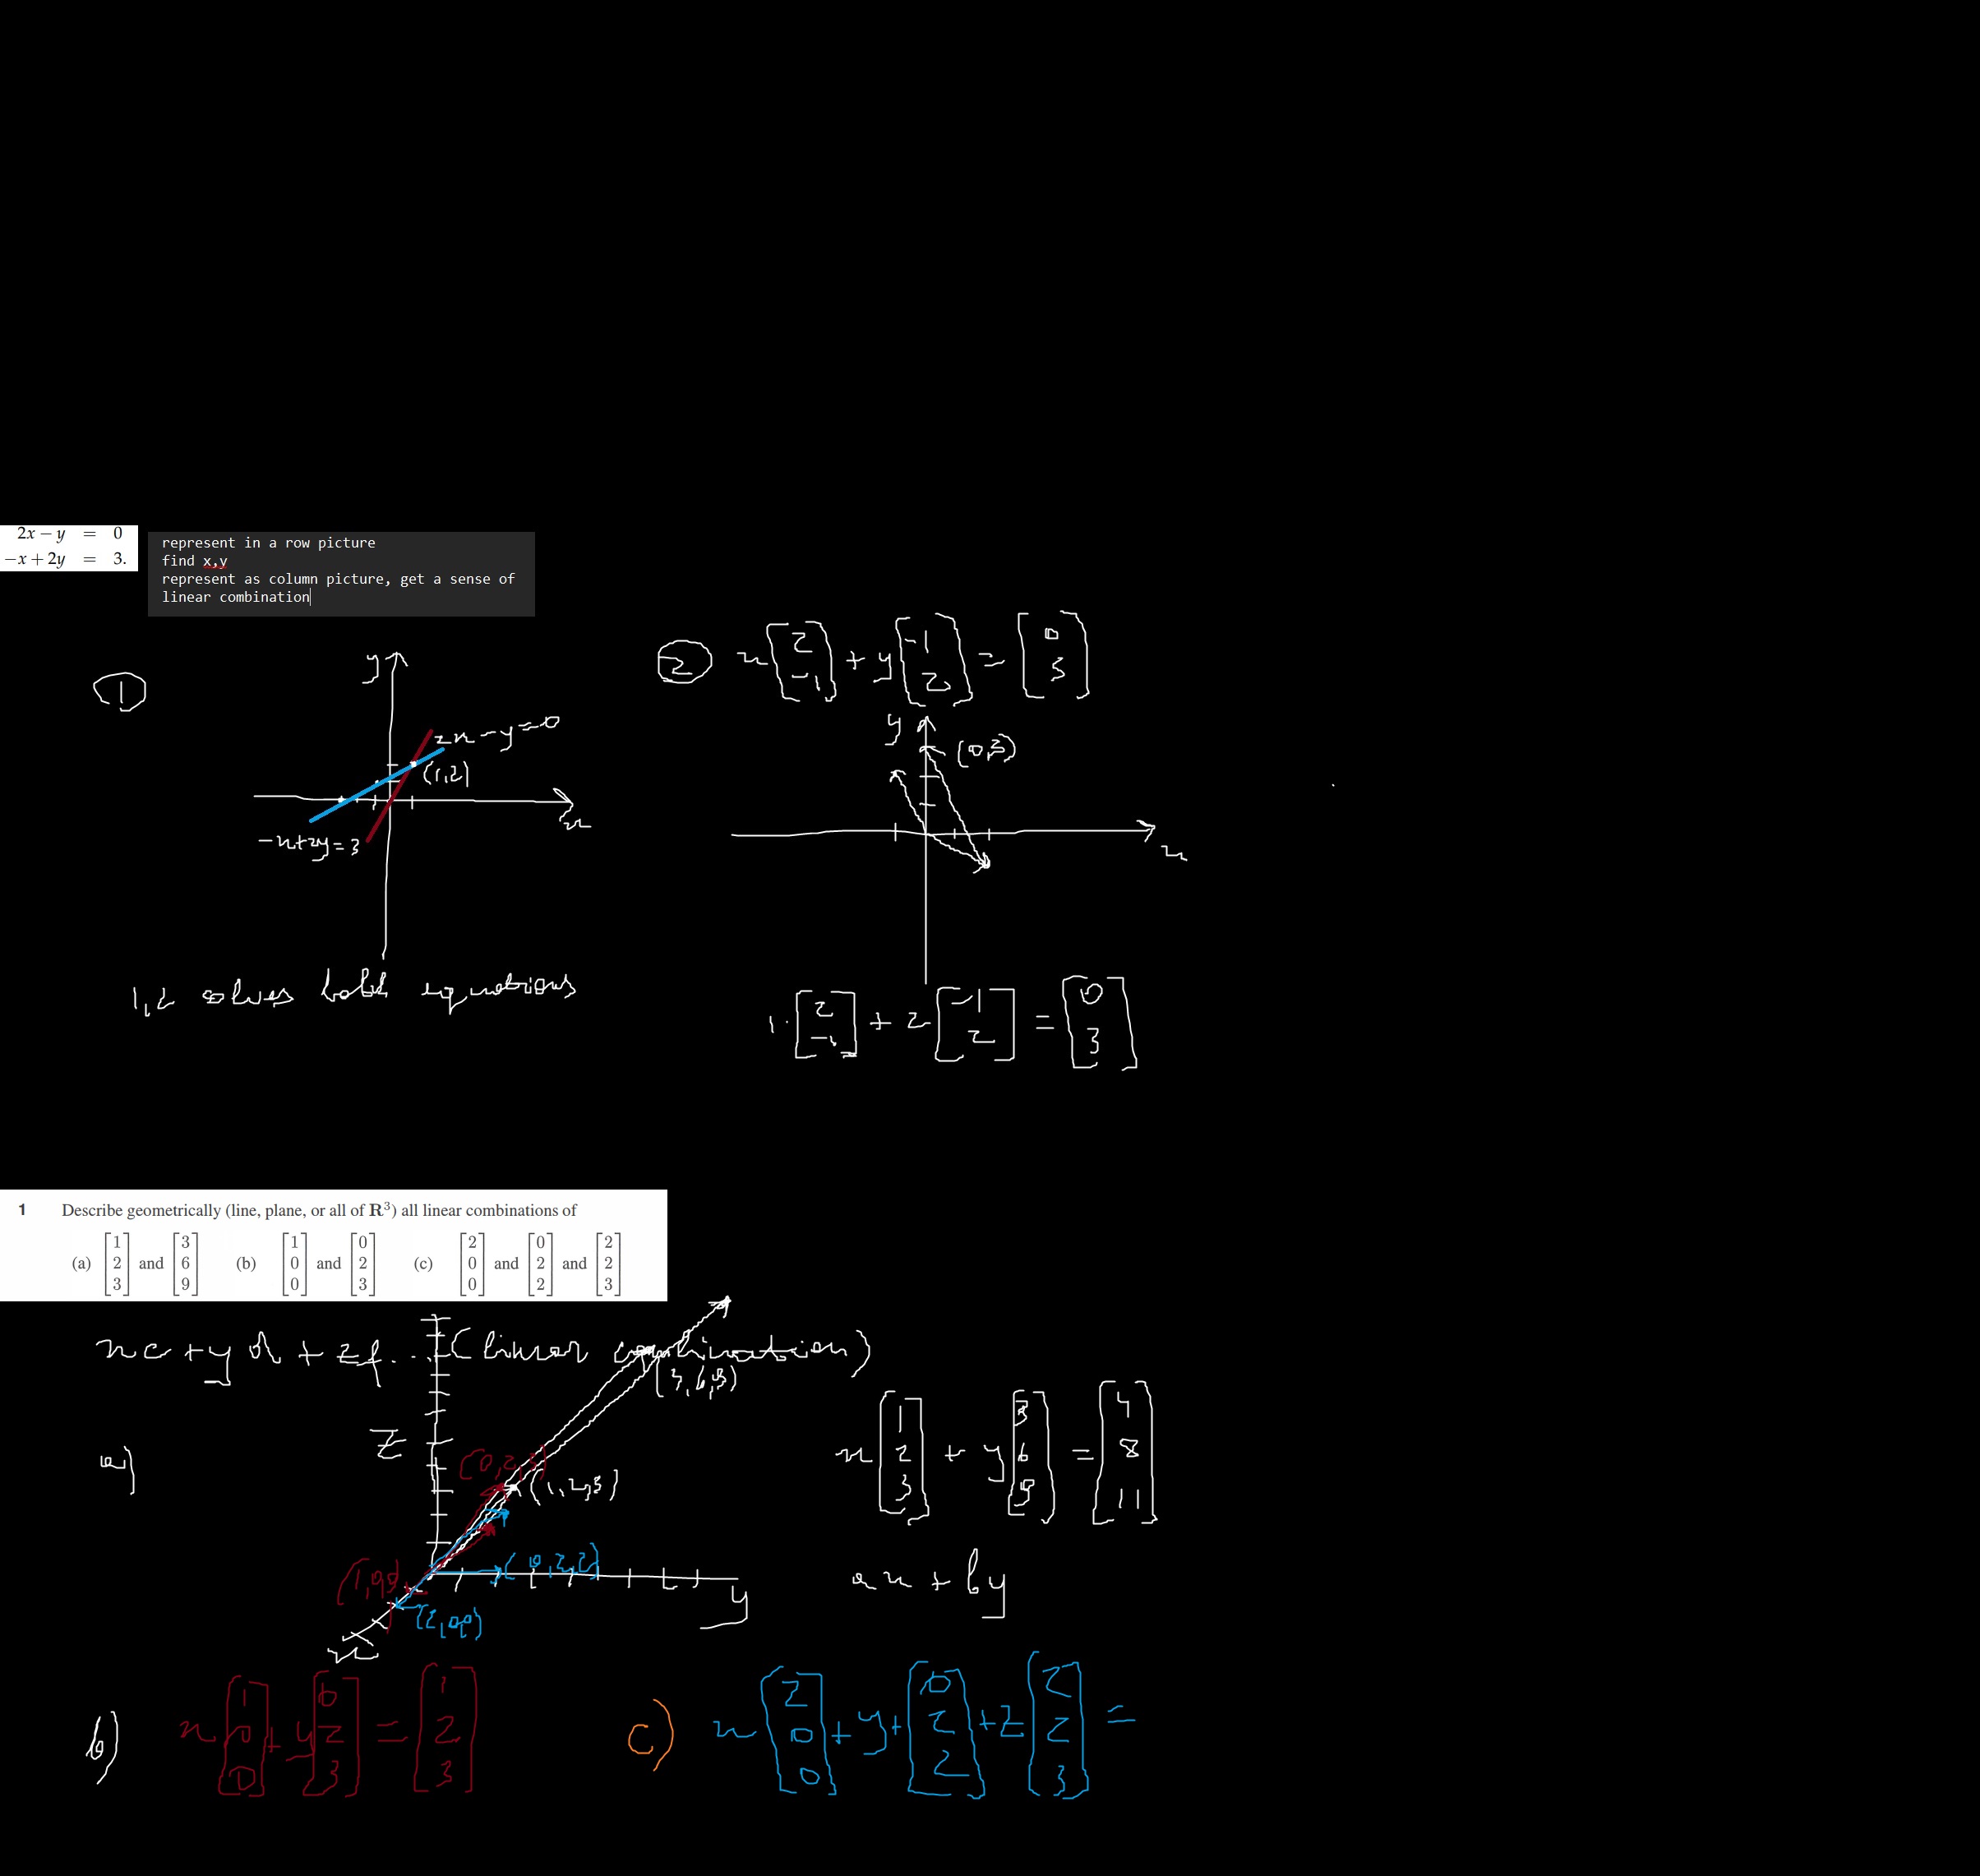 2x − y = 0
−x + 2y = 3.
represent in a row picture
find x,y
represent as column picture, get a sense of
linear combination
①
y
2x - y = 0
(1,2)
x
-x+2y=3
1,2 solves both equations
②
x [2 -1] + y [-1 2] = [0 3]
y
(0,3)
x
1· [2 -1] + 2 [-1 2] = [0 3]
1 Describe geometrically (line, plane, or all of R³) all linear combinations of
(a) [1 2 3] and [3 6 9] (b) [1 0 0] and [0 2 3] (c) [2 0 0] and [0 2 2] and [2 2 3]
xc + yd + zf... (linear combination)
(3,6,9)
a)
z
(0,2,3)
(1,2,3)
(1,0,0)
(0,2,2)
(2,0,0)
y
x
x [1 2 3] + y [3 6 9] = [4 8 11]
ax + by
b) x [1 0 0] + y [0 2 3] = [1 2 3]
c) x [2 0 0] + y + [0 2 2] + z [2 2 3] =